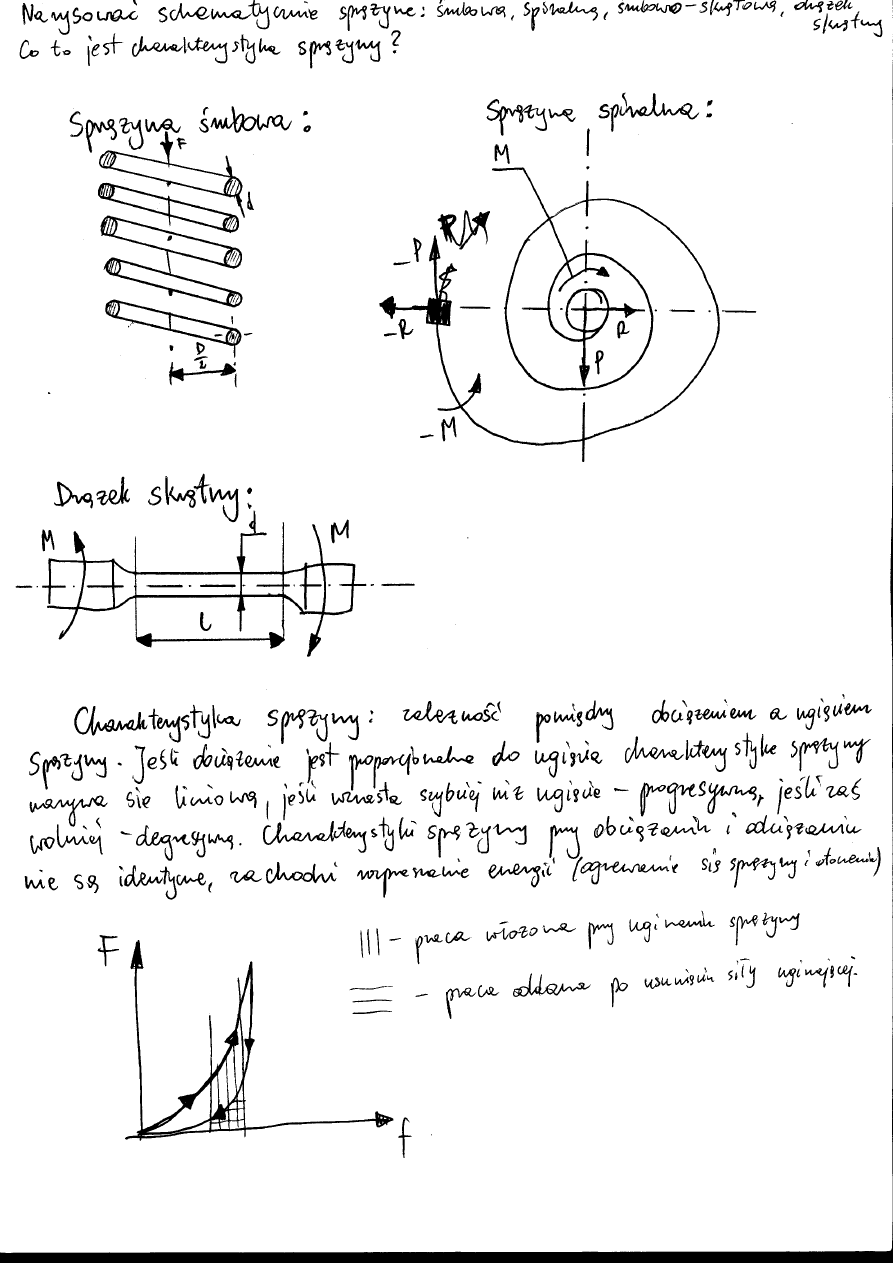 Narysować schematycznie sprężynę: śrubową, spiralną, śrubowo-skrętową, drążek skrętny
Co to jest charakterystyka sprężyny?
Sprężyna śrubowa:
F
d
D/2
Sprężyna spiralna:
M
-P
-R
R
P
-M
Drążek skrętny:
M
d
M
l
Charakterystyka sprężyny: zależność pomiędzy obciążeniem a ugięciem
sprężyny. Jeśli obciążenie jest proporcjonalne do ugięcia charakterystykę sprężyny
nazywa się liniową, jeśli wzrasta szybciej niż ugięcie - progresywną, jeśli zaś
wolniej - degresywną. Charakterystyki sprężyny przy obciążaniu i odciążaniu
nie są identyczne, zachodzi rozpraszanie energii (ogrzewanie się sprężyny i otoczenia)
F
||| - praca włożona przy uginaniu sprężyny
☰ - praca oddana po usunięciu siły uginającej.
f